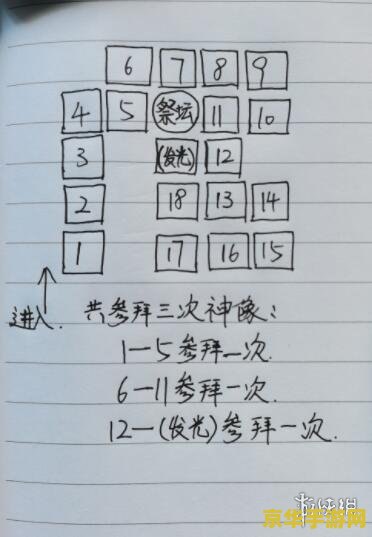 6 7 8 9
4 5 祭坛 11 10
3 (发光) 12
2 18 13 14
1 17 16 15
进入.
共参拜三次神像:
1—5参拜一次.
6—11参拜一次.
12—(发光)参拜一次.
游侠网
京华手游网